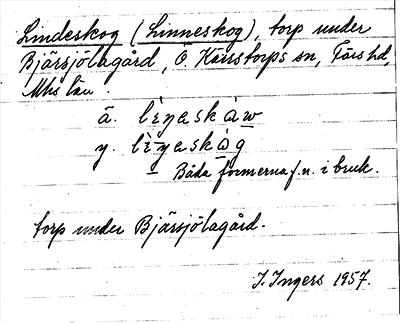 Lindeskog (Linneskog), torp under
Bjärsjölagård, Ö Kärrstorps sn, Färs hd,
Mhs län.
ä.
y.
Båda formerna f.n. i bruk.
torp under Bjärsjölagård.
I. Ingers 1957.